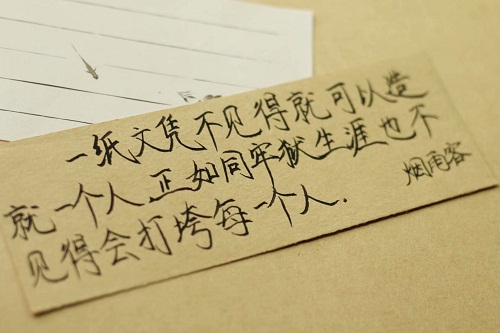 一纸文凭不见得就可以造
就一个人,正如同牢狱生涯也不
见得会打垮每一个人.
烟雨客